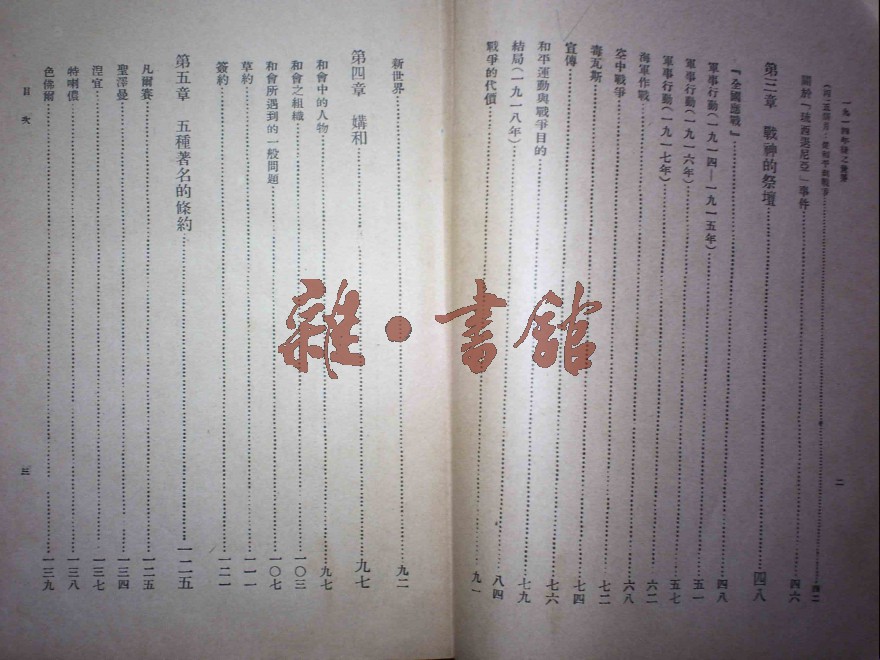 一九一四年後之世界
二
事件……四六
第三章 戰神的祭壇……四八
『全國應戰』……四八
軍事行動(一九一四—一九一五年)……五一
軍事行動(一九一六年)……五七
軍事行動(一九一七年)……六二
海軍作戰……六八
空中戰爭……七二
毒瓦斯……七四
宣傳……七六
和平運動與戰爭目的……七九
結局(一九一八年)……八四
戰爭的代價……九一
新世界……九二
第四章 媾和……九七
和會中的人物……九七
和會之組織……一〇三
和會所遇到的一般問題……一〇七
草約……一一一
簽約……一二一
第五章 五種著名的條約……一二五
凡爾賽……一二五
聖澤曼……一三四
涅宜……一三七
特喇儂……一三八
色佛爾……一三九
目次
三
雜·書館